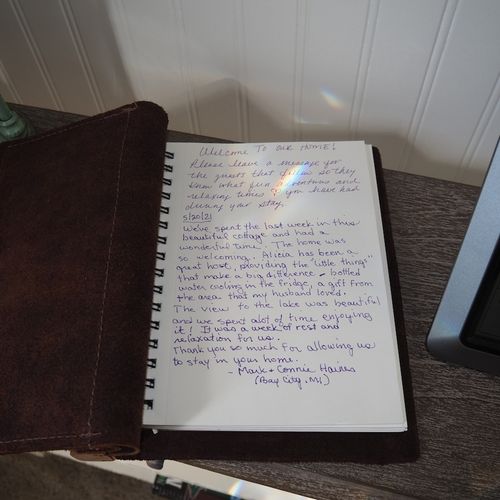 Welcome To our Home!
Please leave a message for
the guests that follow so they
know what fun, adventures and
relaxing times you have had
during your stay.
5/20/21
We've spent the last week in this
beautiful cottage and had a
wonderful time. The home was
so welcoming. Alicia has been a
great host, providing the "little things"
that make a big difference - bottled
water cooling in the fridge, a gift from
the area that my husband loved.
The view to the lake was beautiful
and we spent alot of time enjoying
it! It was a week of rest and
relaxation for us.
Thank you so much for allowing us
to stay in your home.
- Mark + Connie Haines
(Bay City, MI)